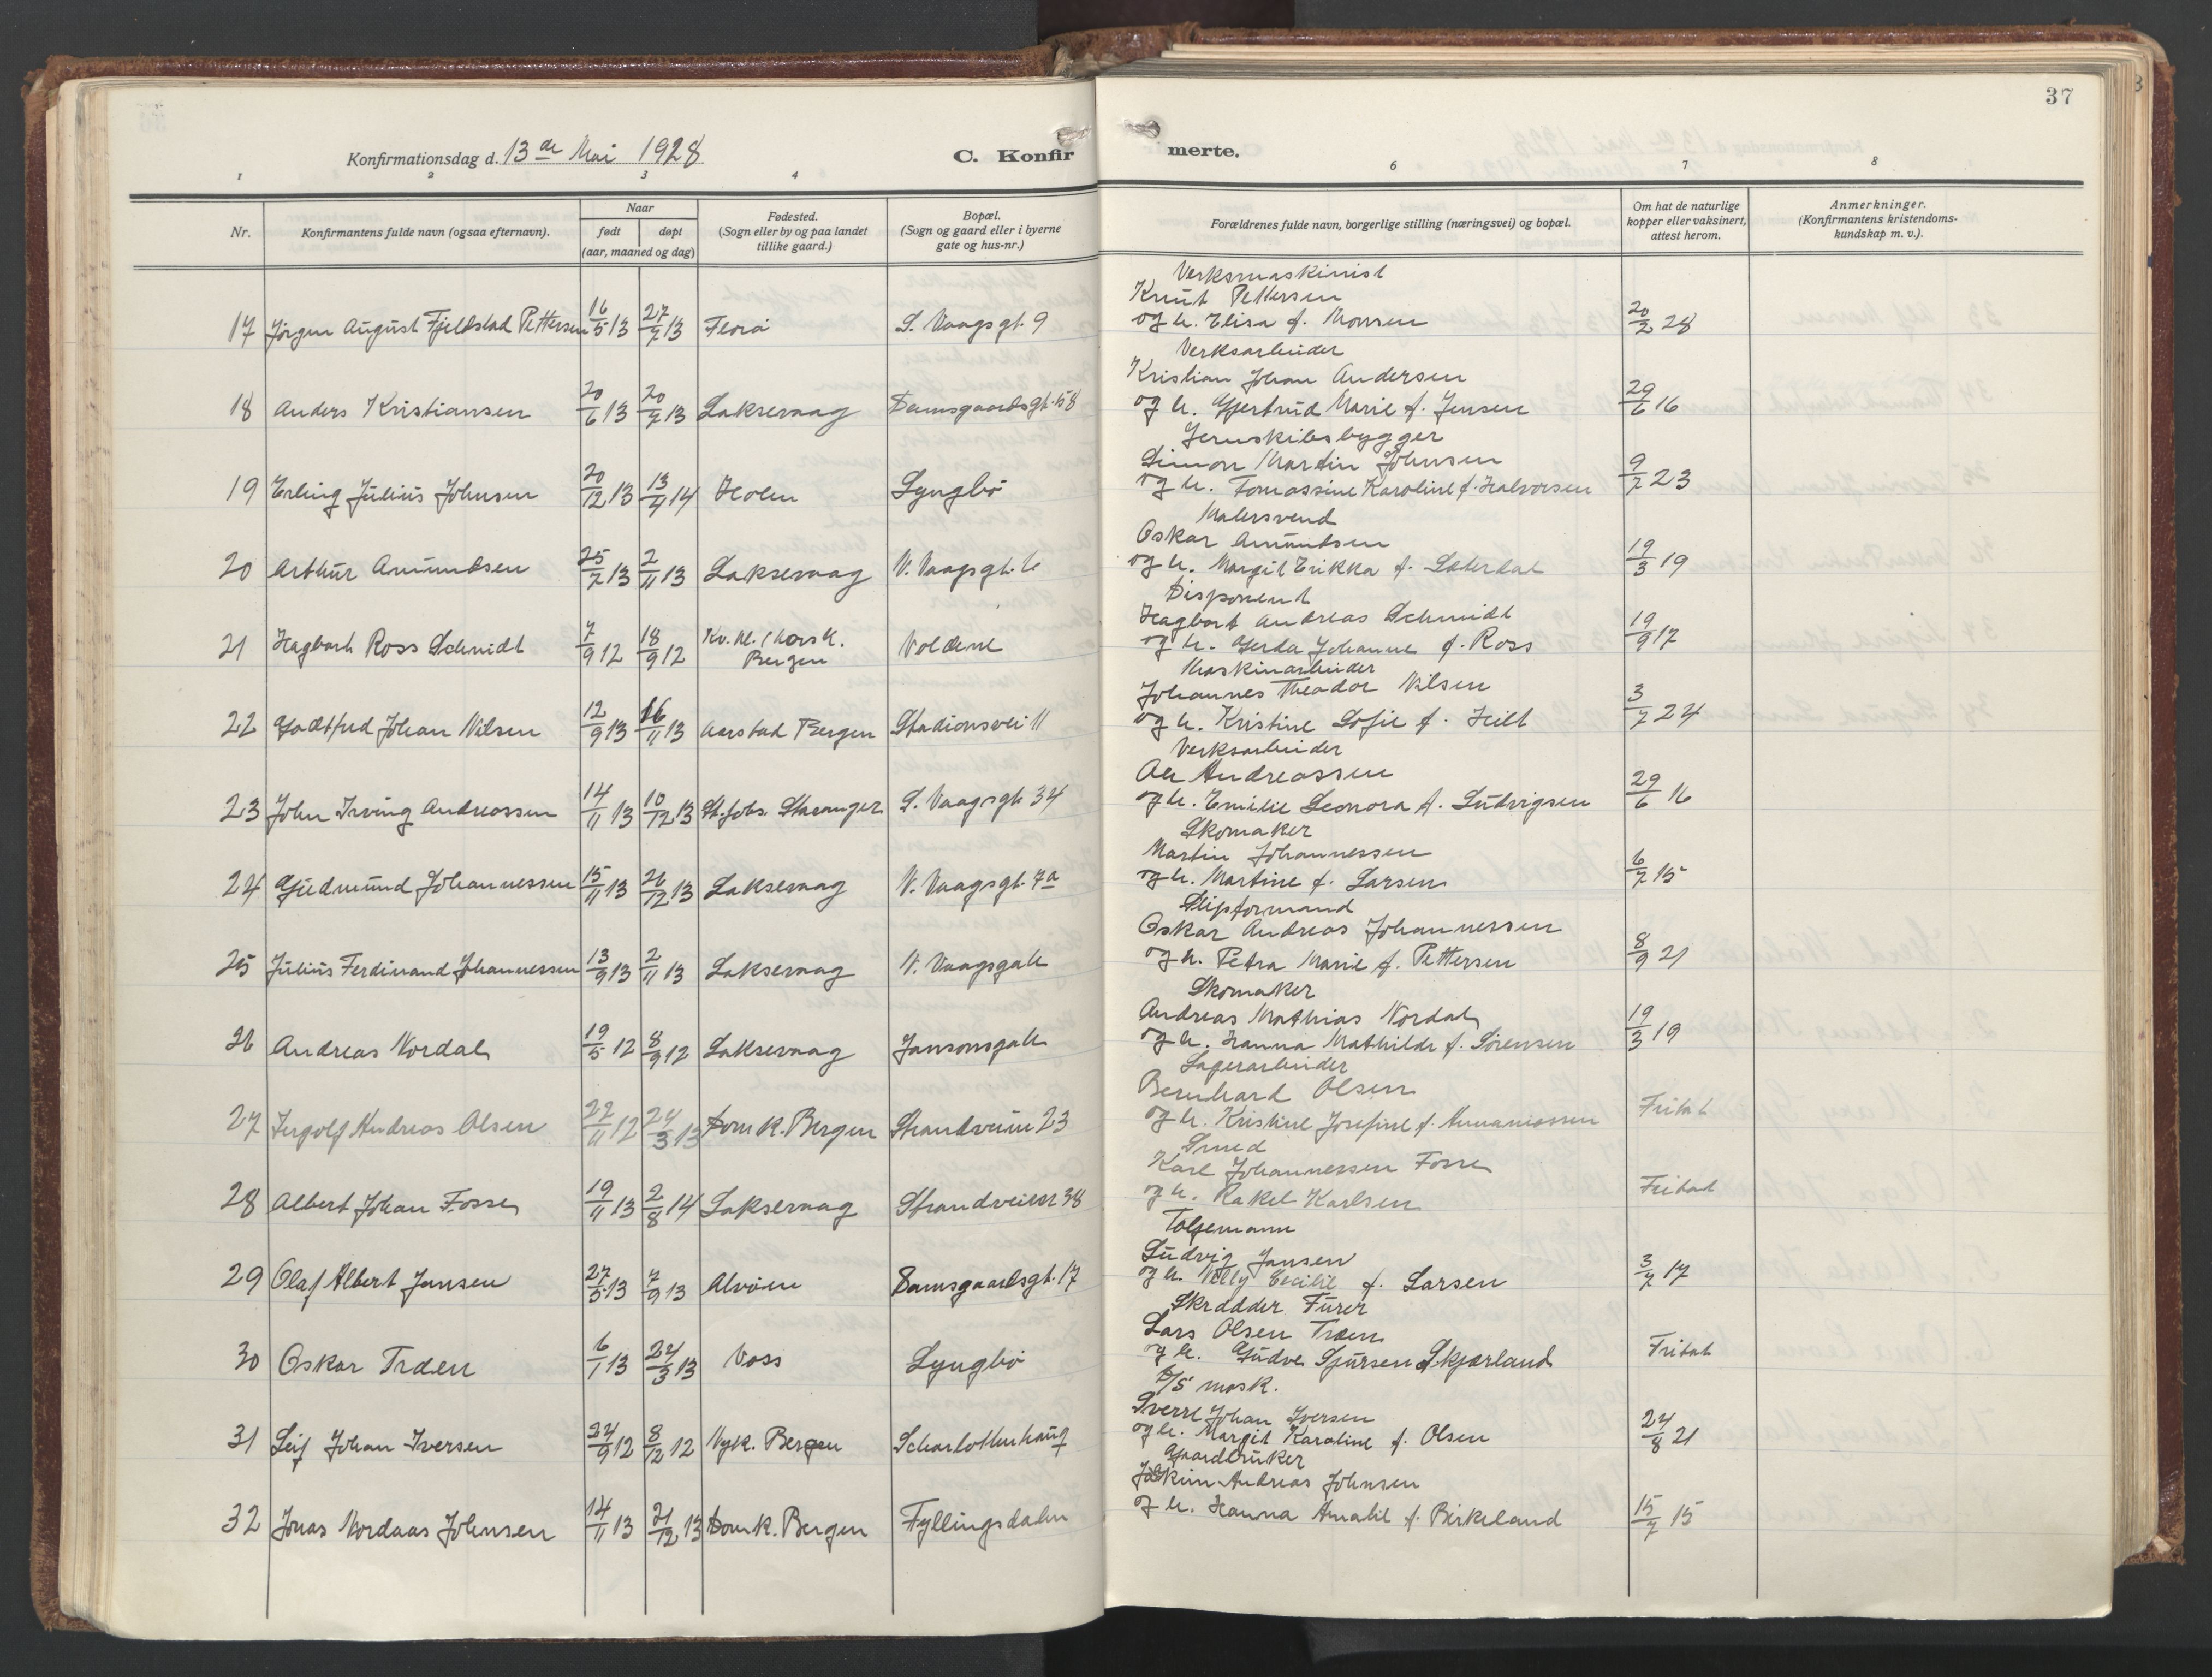 37
Konfirmationsdag d. 13de Mai 1928
C. Konfirmerte.
1 2 3 4 6 7 8
Nr.
Konfirmantens fulde navn (ogsaa efternavn).
Naar
født døpt
(aar, maaned og dag)
Fødested.
(Sogn eller by og paa landet
tillike gaard.)
Bopæl.
(Sogn og gaard eller i byerne
gate og hus-nr.)
Forældrenes fulde navn, borgerlige stilling (næringsvei) og bopæl.
Om hat de naturlige
kopper eller vaksinert,
attest herom.
Anmerkninger.
(Konfirmantens kristendoms-
kundskap m. v.).
Verksmaskinist
Knut Pettersen
17 Jørgen August Fjeldstad Pettersen 16/5 13 27/7 13 Florø S. Vaagsgt. 9 og h. Elisa f. Monsen 20/2 28
Verksarbeider
Kristian Johan Andersen
18 Anders Kristiansen 20/6 13 20/7 13 Laksevaag Damsgaardsgt. 58 og h. Gjertrud Marie f. Jensen 29/6 16
Jernskibsbygger
Simon Martin Johnsen
19 Erling Julius Johnsen 20/12 13 13/4 14 Holen Lyngbø og h. Tomassine Karoline f. Halvorsen 9/7 23
Malersvend
Oskar Amundsen
20 Arthur Amundsen 25/7 13 2/11 13 Laksevaag N. Vaagsgt. 6 og h. Margit Erikka f. Sæterdal 19/3 19
Disponent
Hagbart Andreas Schmidt
21 Hagbart Ross Schmidt 7/9 12 18/9 12 Kv. kl. / Korsk. Bergen Voldene og h. Gerda Johanne f. Ross 19/9 17
Maskinarbeider
Johannes Theodor Nilsen
22 Godtfred Johan Nilsen 12/9 13 16/11 13 Aarstad Bergen Stadionsvei 11 og h. Kristine Sofie f. Hilt 3/7 24
Verksarbeider
Andreassen
23 John Irving Andreassen 14/11 13 10/12 13 St. Johs. Stavanger S. Vaagsgt. 34 og h. Emilie Leonora f. Ludvigsen 29/6 16
Skomaker
Martin Johannessen
24 Gudmund Johannessen 15/11 13 26/12 13 Laksevaag N. Vaagsgt. 7a og h. Martine f. Larsen 6/7 15
Slipformand
Oskar Andreas Johannessen
25 Julius Ferdinand Johannessen 13/9 13 2/11 13 Laksevaag N. Vaagsgate og h. Petra Marie f. Pettersen 8/9 21
Skomaker
Andreas Mathias Nordal
26 Andreas Nordal 19/5 12 8/9 12 Laksevaag Jansonsgate og h. Hanna Mathilde f. Sørensen 19/3 19
Lagerarbeider
Bernhard Olsen
27 Ingolf Andreas Olsen 22/11 12 24/3 13 Domk. Bergen Strandveien 23 og h. Kristine Josefine f. Annaniassen Fritat
Smed
Karl Johannessen Fosse
28 Albert Johan Fosse 19/11 13 2/8 14 Laksevaag Strandveien 38 og h. Rakel Karlsen Fritat
Tolfemann
Ludvig Jansen
29 Olaf Albert Jansen 27/5 13 7/9 13 Alvøen Damsgaardsgt. 17 og h. Nelly Cecilie f. Larsen 3/7 17
Skrædder Furer
Lars Olsen Træen
30 Oskar Træen 6/1 13 24/3 13 Voss Lyngbø og h. Gudve Sjursen Skjærland Fritat
D/S mask.
Sverre Johan Iversen
31 Leif Johan Iversen 24/9 12 8/12 12 Nyk. Bergen Scharlottenhaug og h. Margit Karoline f. Olsen 24/8 21
Gaardbruker
Joakim Andreas Johnsen
32 Jonas Nordaas Johnsen 14/11 13 21/12 13 Domk. Bergen Fyllingsdalen og h. Hanna Amalie f. Birkeland 15/7 15